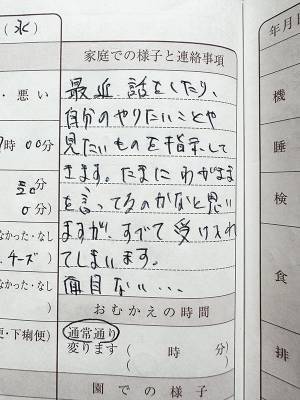 (水)
年月日
家庭での様子と連絡事項
・悪い
最近 話をしたり、
機
自分のやりたいことや
見たいものを指示して
睡
時 00分
きます。たまに わがまま
30分
を言ってるのかなと思い
検
0分)
ますが、すべて 受け入れ
なかった・なし
てしまいます。
食
チーズ)
面目ない...
なかった・なし
おむかえの時間
便・下痢便)
通常通り
排
変ります ( 時 分)
園での様子